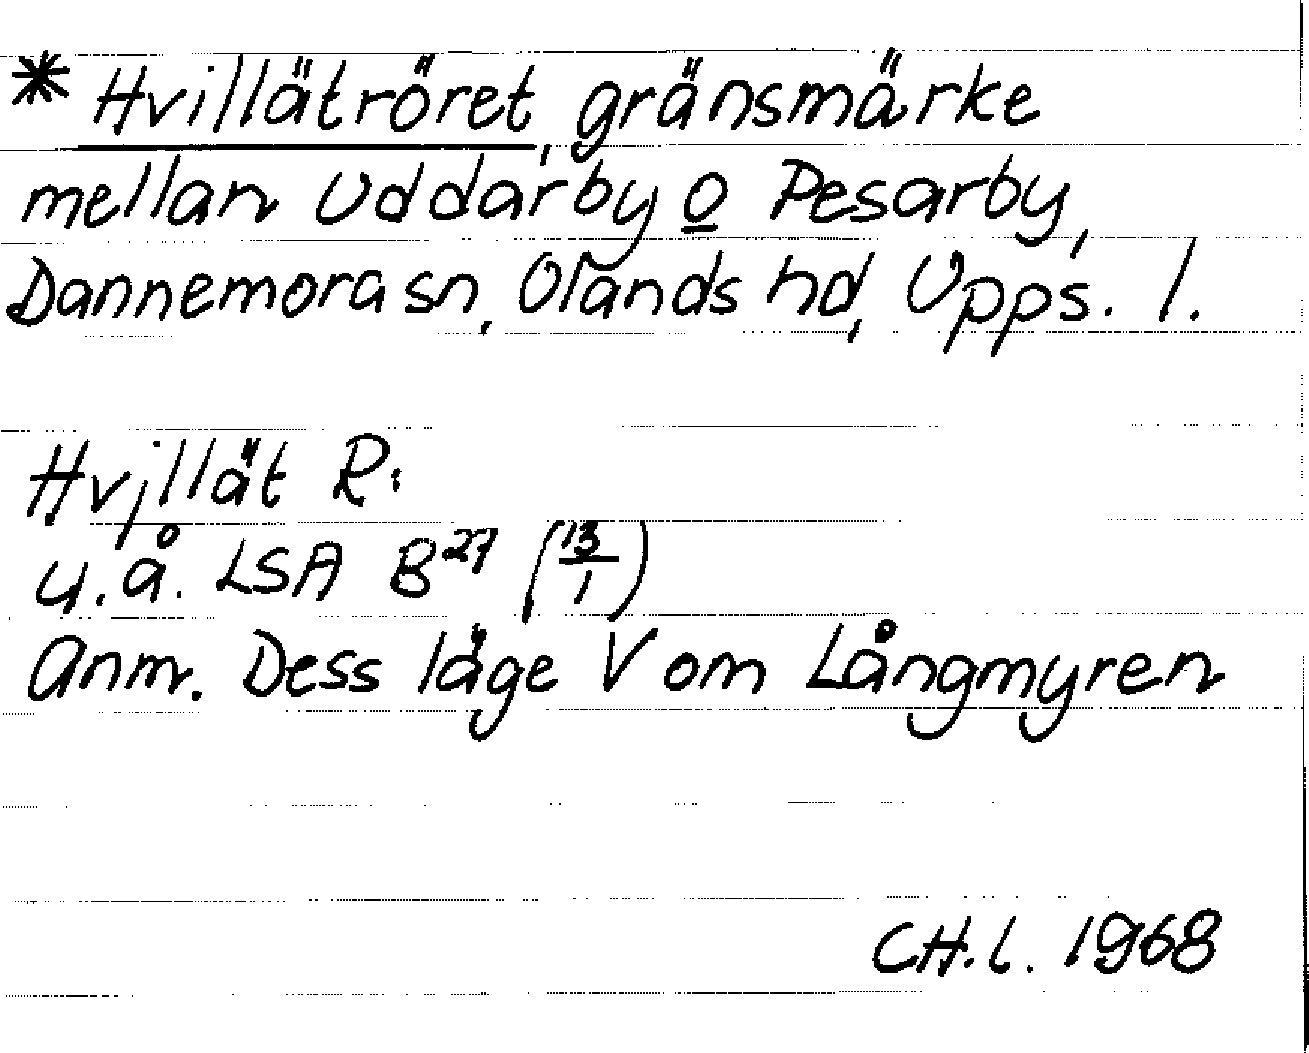 * Hvillätröret, gränsmärke
mellan Uddarby o Pesarby,
Dannemora sn, Olands hd, Upps. l.
Hvjllät R:
u.å. LSA B27 (13/1)
Anm. Dess läge V om Långmyren
CH.L. 1968